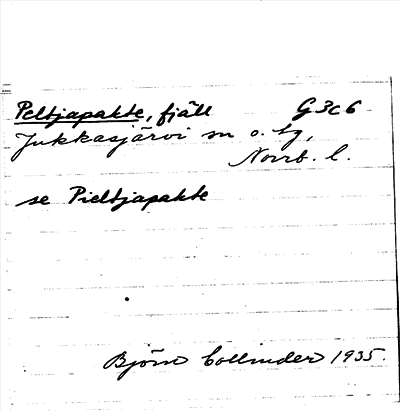 Peltjapakte, fjäll G 3c 6
Jukkasjärvi sn o. tg,
Norrb. l.
se Pieltjapakte
Björn Collinder 1935.